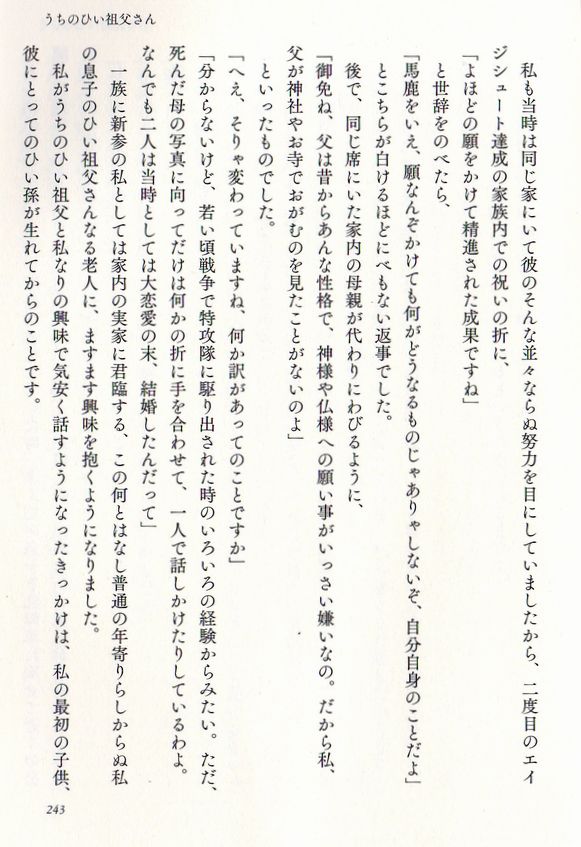 うちのひい祖父さん
私も当時は同じ家にいて彼のそんな並々ならぬ努力を目にしていましたから、二度目のエイ
ジシュート達成の家族内での祝いの折に、
「よほどの願をかけて精進された成果ですね」
と世辞をのべたら、
「馬鹿をいえ、願なんぞかけても何がどうなるものじゃありゃしないぞ、自分自身のことだよ」
とこちらが白けるほどにべもない返事でした。
後で、同じ席にいた家内の母親が代わりにわびるように、
「御免ね、父は昔からあんな性格で、神様や仏様への願い事がいっさい嫌いなの。だから私、
父が神社やお寺でおがむのを見たことがないのよ」
といったものでした。
「へえ、そりゃ変わっていますね、何か訳があってのことですか」
「分からないけど、若い頃戦争で特攻隊に駆り出された時のいろいろの経験からみたい。ただ、
死んだ母の写真に向ってだけは何かの折に手を合わせて、一人で話しかけたりしているわよ。
なんでも二人は当時としては大恋愛の末、結婚したんだって」
一族に新参の私としては家内の実家に君臨する、この何とはなし普通の年寄りらしからぬ私
の息子のひい祖父さんなる老人に、ますます興味を抱くようになりました。
私がうちのひい祖父と私なりの興味で気安く話すようになったきっかけは、私の最初の子供、
彼にとってのひい孫が生れてからのことです。
243